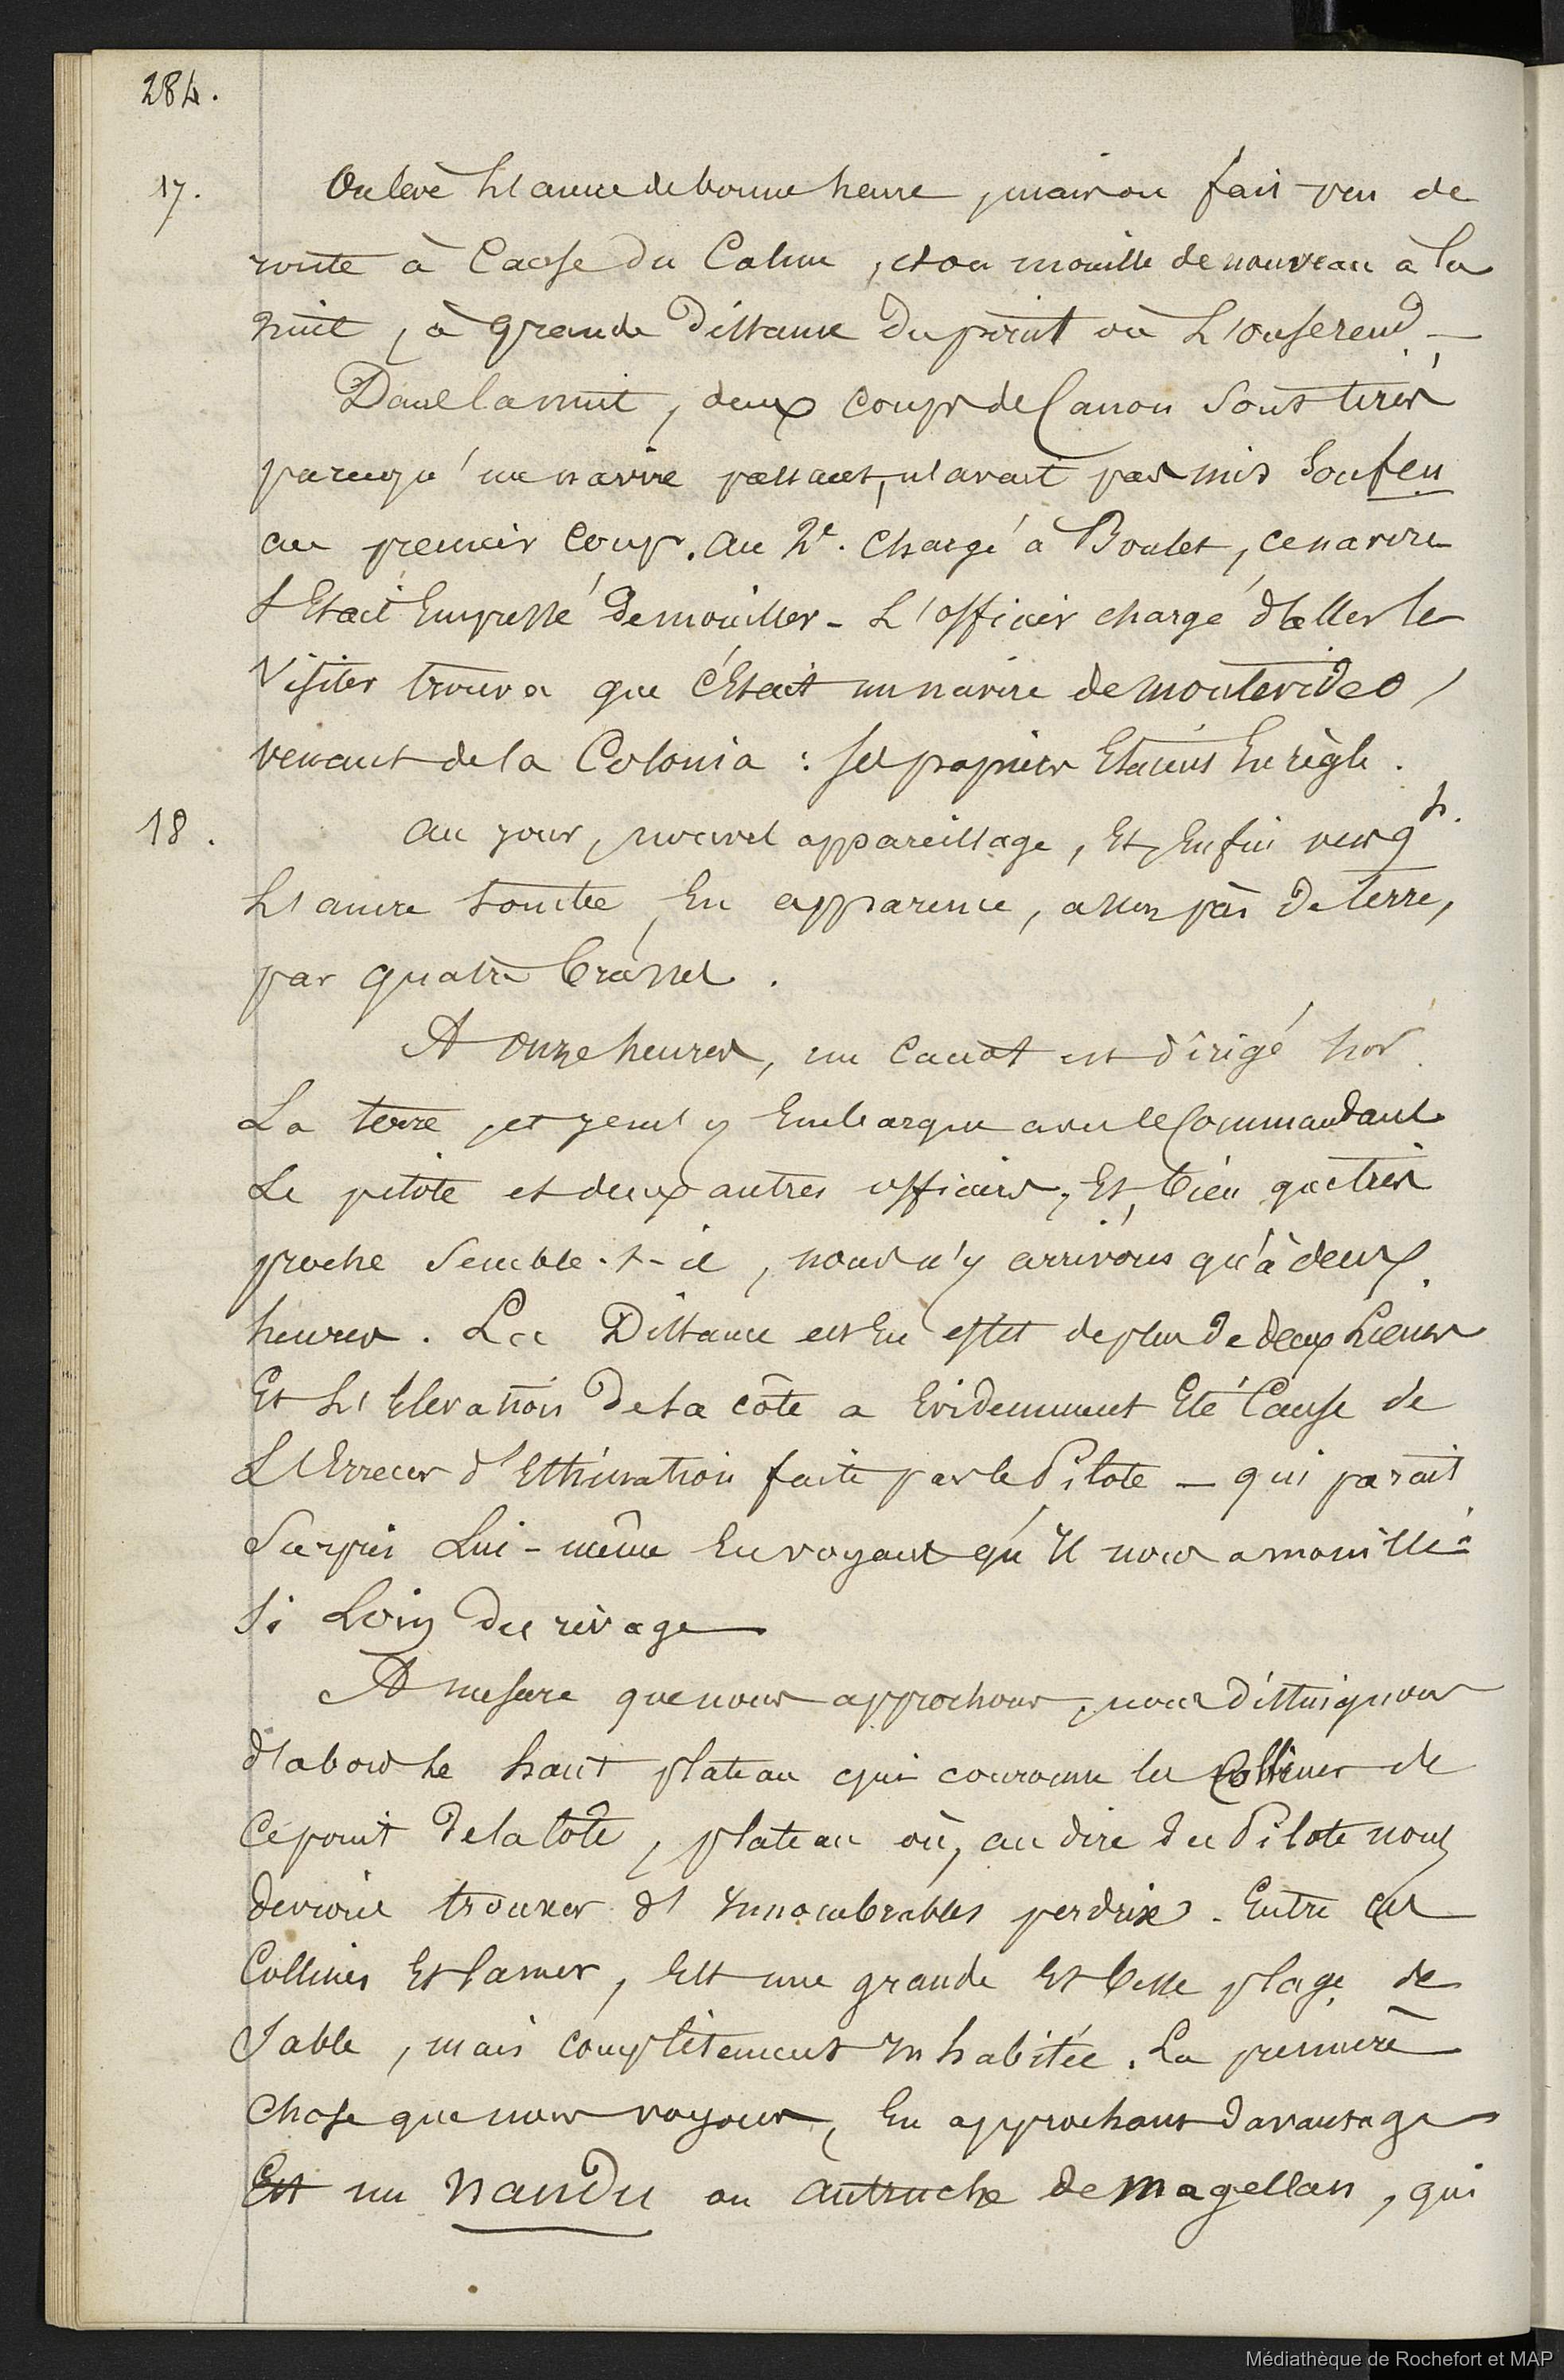 284.
17. On lève L'ancre de bonne heure, mais on fait peu de
route à Cause du Calme, et on mouille de nouveau à la
nuit, à grande Distance du point où L'on se rend. —
Dans la nuit, deux coups de Canon Sont tirés
parcequ'un navire passant, n'avait pas mis Son feu
au premier Coup. au 2e. chargé à Boulet, ce navire
S'Etait Empressé De mouiller - L'officier chargé d'aller le
Visiter trouva que C'Etait un navire de montevideo,
venant de la Colonia : Ses papiers Etaient En règle.
18. au jour, nouvel appareillage, Et, Enfin vers 9 h.
L'ancre tombe, En apparence, assez près De terre,
par quatre brasses.
A onze heures, un Canot est dirigé
La terre, et j'y Embarque avec le Commandant
Le pilote et deux autres officiers, Et, bien que très
proche Semble-t-il, nous n'y arrivons qu'à deux
heures. La Distance est En effet de plus de deux Lieues
Et L'Elevation De la côte a Evidemment Eté Cause de
L'Erreur d'Estimation faite par le Pilote — qui parait
Surpris Lui-même En voyant qu'Il nous a mouillé
Si Loin du rivage
A mesure que nous approchons, nous Distinguons
d'abord le haut plateau qui couronne les Collines de
Ce point De la Côte, plateau où, au dire du Pilote nous
devrions trouver d'Innombrables perdrix. Entre ces
Collines Et La mer, Est une grande Et belle plage de
Sable, mais complètement Inhabitée. La première
Chose que nous voyons, En approchant davantage
Est un nandu ou autruche de magellan, qui
Médiathèque de Rochefort et MAP